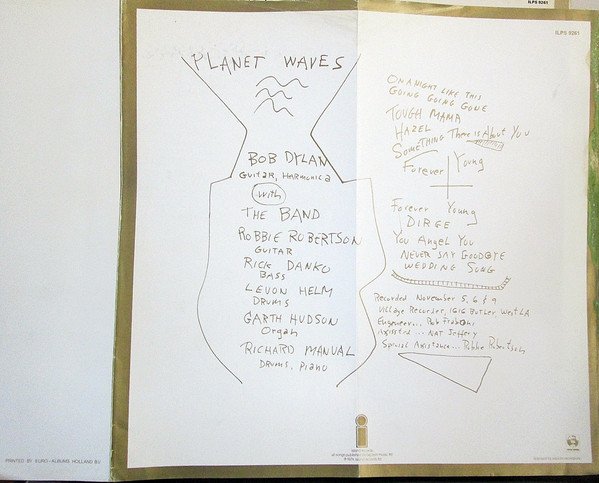 ILPS 9261
ILPS 9261
PLANET WAVES
BOB DYLAN
GUITAR, HARMONICA
with
THE BAND
ROBBIE ROBERTSON
GUITAR
RICK DANKO
BASS
LEVON HELM
DRUMS
GARTH HUDSON
Organ
RICHARD MANUAL
DRUMS, PIANO
ON A NIGHT LIKE THIS
GOING GOING GONE
TOUGH MAMA
HAZEL
SOMETHING There is About You
Forever Young
Forever Young
DIRGE
You Angel You
NEVER SAY GOODBYE
WEDDING SONG
Recorded November 5, 6 & 9
Village Recorder, 1616 Butler West LA
Engineer... Rob Fraboni
Assisted... NAT Jeffery
Special Assistance... Robbie Robertson
i
PRINTED BY EURO-ALBUMS HOLLAND BV.